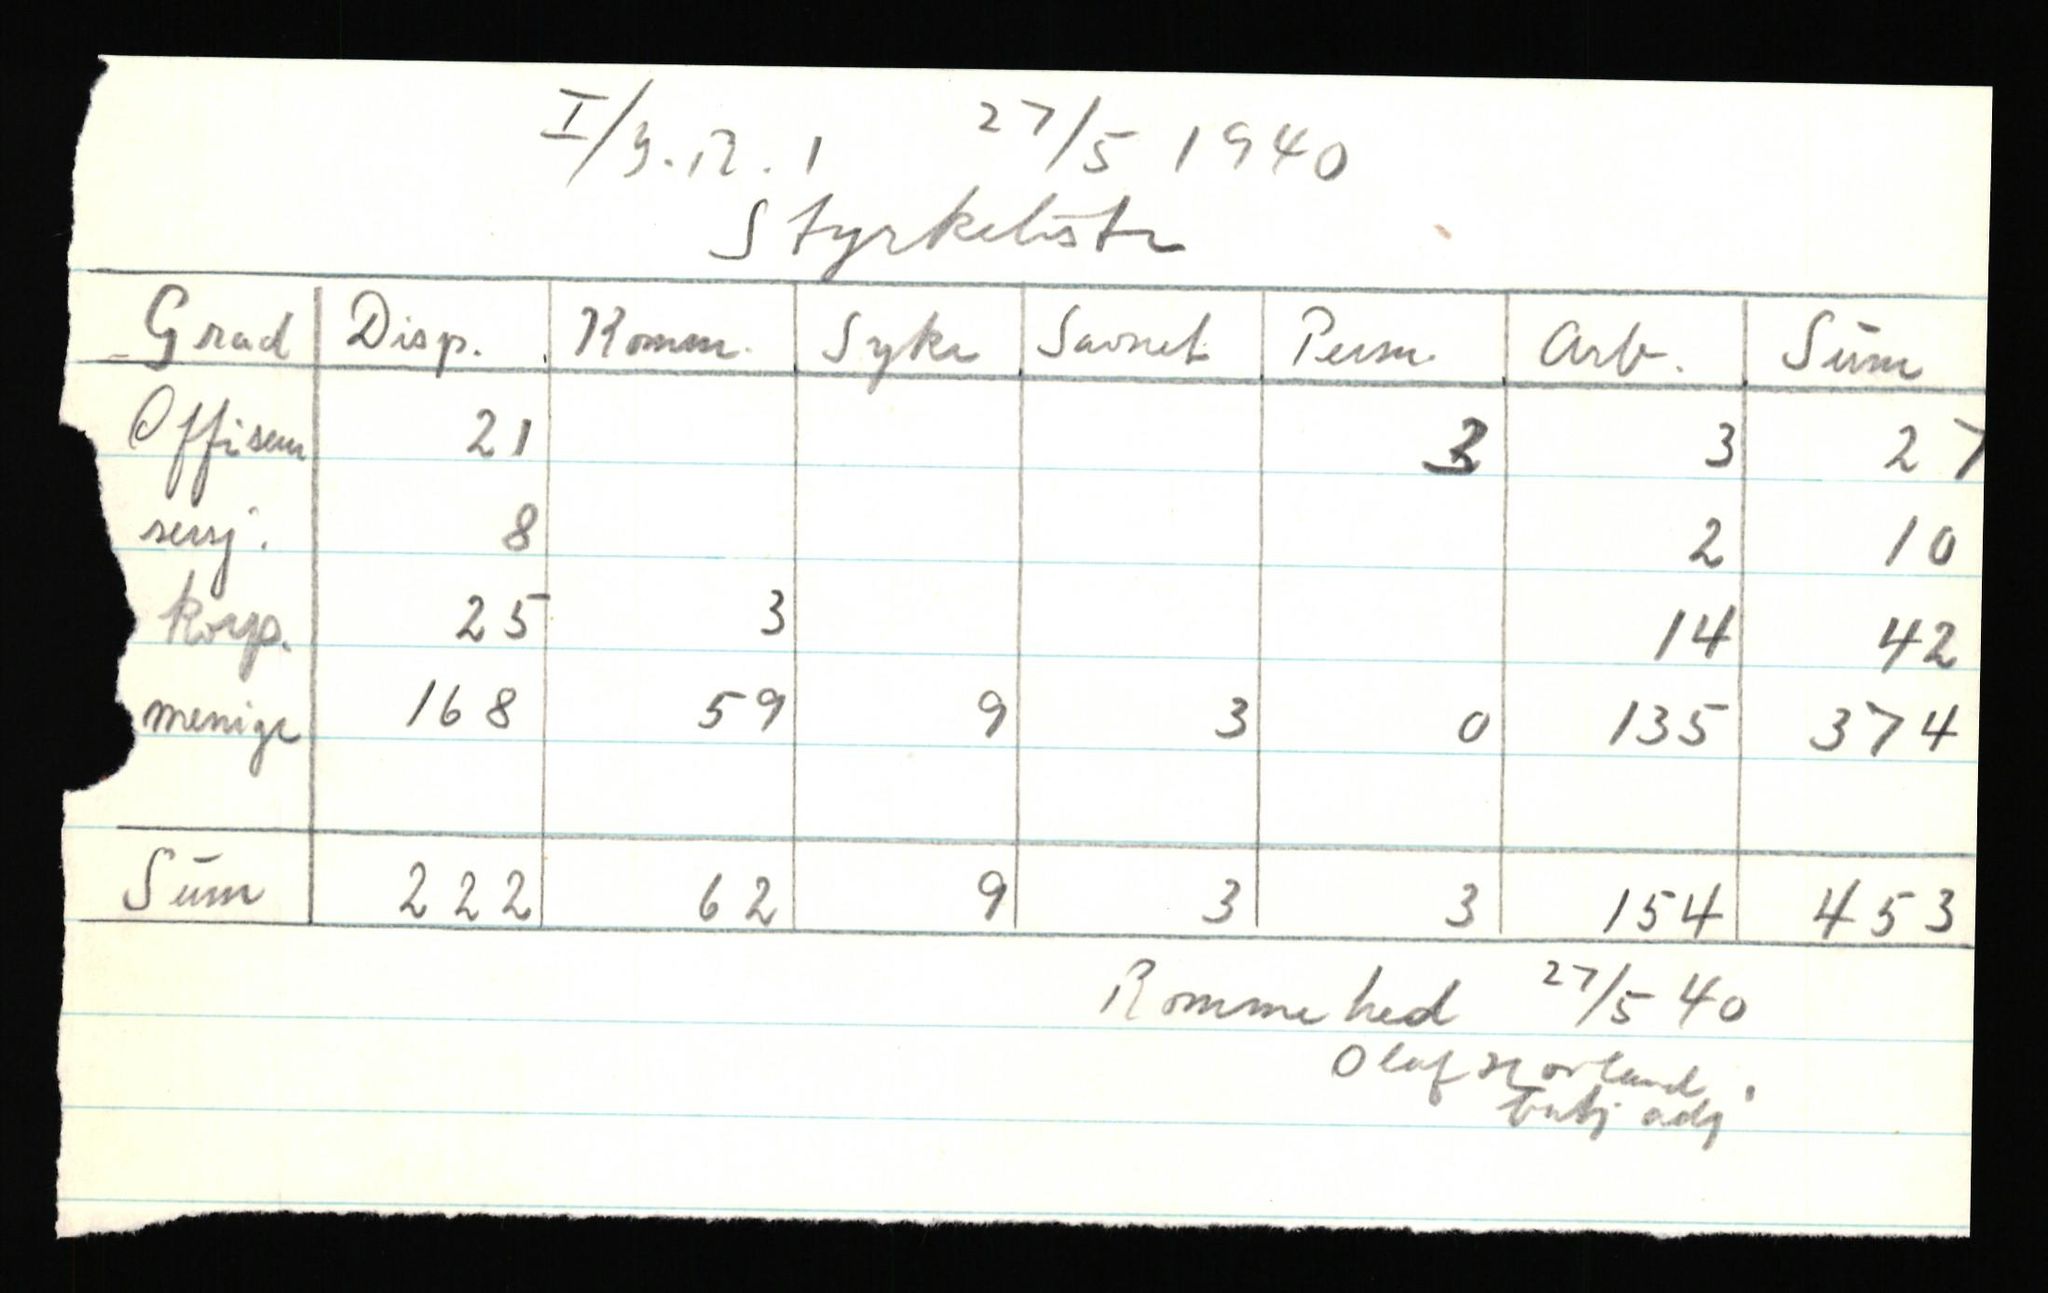 I/J.R. 1 27/5 1940
Styrkeliste
Grad Disp. Komm. Syke Savnet Perm. Arb. Sum
Offiserer 21 3 3 27
serj. 8 2 10
korp. 25 3 14 42
menige 168 59 9 3 0 135 374
Sum 222 62 9 3 3 154 453
Rommehed 27/5 40
Olaf
batj adj